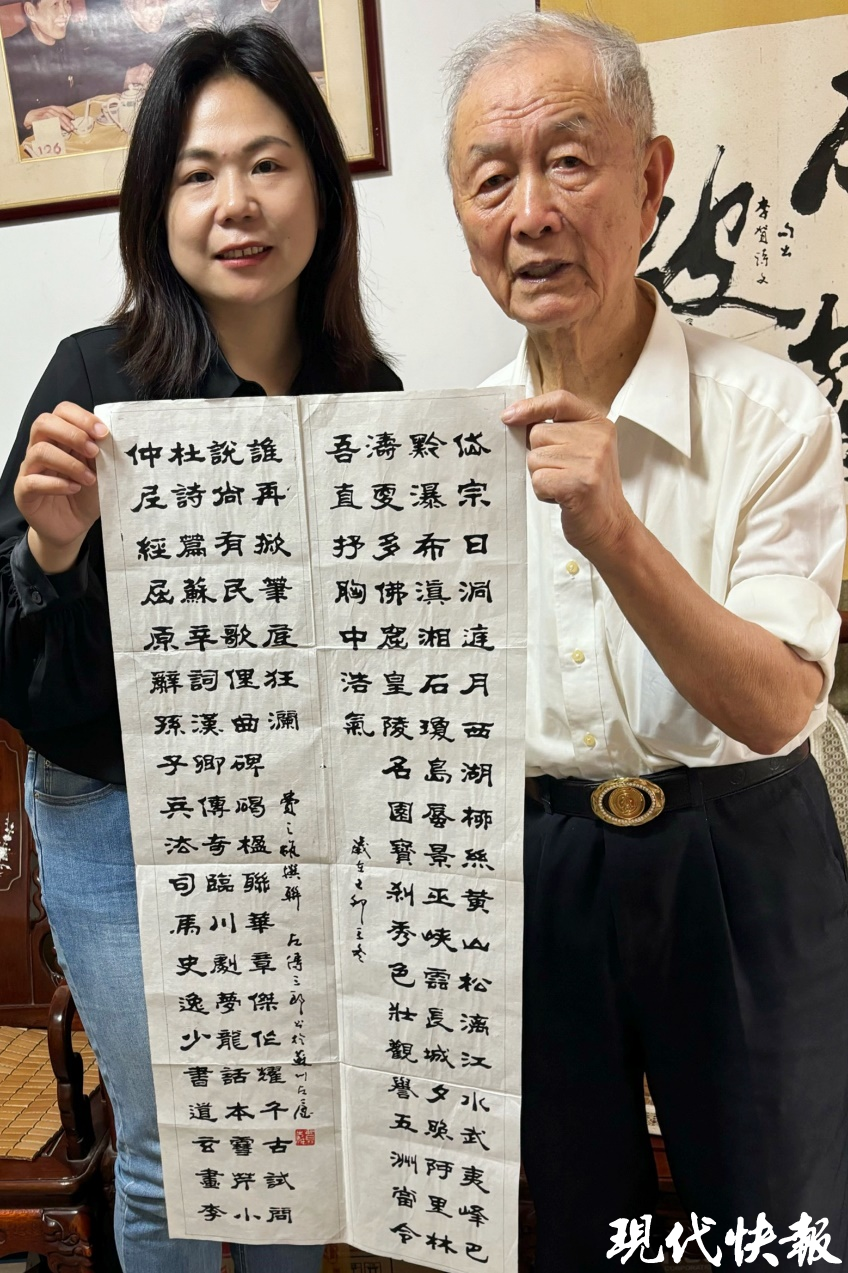 岱宗日洞庭月西湖柳絲黃山松漓江水武夷峰巴
黔瀑布滇湘石瓊島蜃景巫峽雲長城夕照阿里林
濤更多佛窟皇陵名園寶刹秀色壯觀譽五洲當令
吾直抒胸中浩氣
歲在
仲尼經屈原辭孫子兵法司馬史逸少書道玄畫李
杜詩篇蘇辛詞漢卿傳奇臨川劇夢龍話本雪芹小
說尚有民歌俚曲碑碣楹聯華章傑作耀千古試問
誰再掀筆底狂瀾
費之雄撰聯 三郎書於蘇州左廬
李賀詩文
現代快報